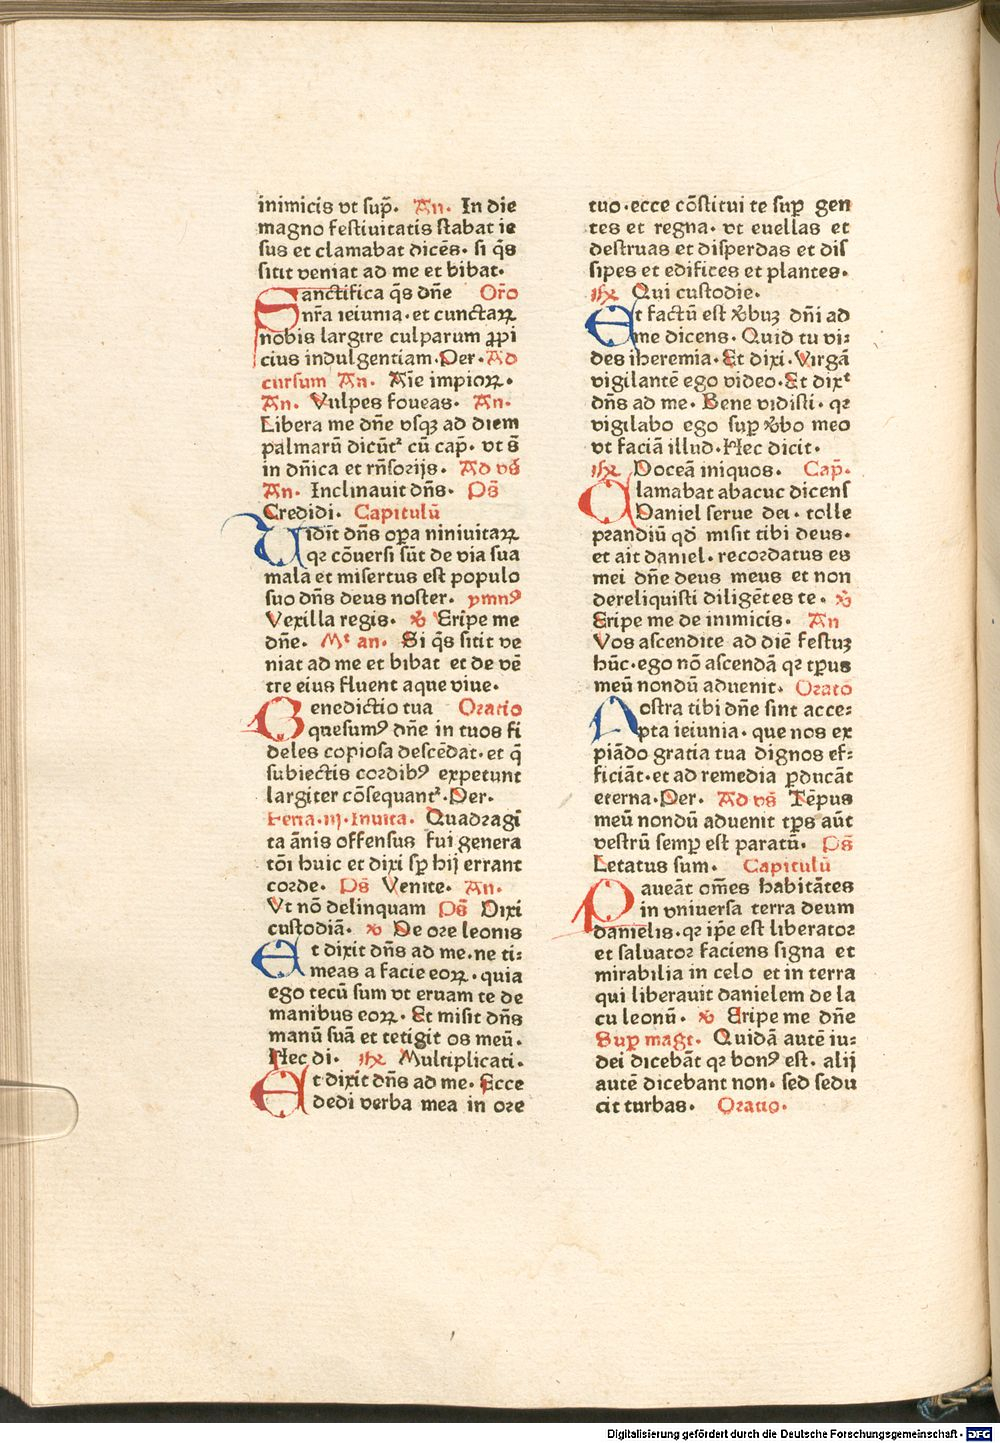 inimicis vt sup̄. An. In die
magno festiuitatis stabat ie
sus et clamabat dicēs. si q̄s
sitit veniat ad me et bibat.
Sanctifica q̄s dn̄e Or̄o
nr̄a ieiunia. et cunctaꝝ
nobis largire culparum ꝓpi
cius indulgentiam. Per. Ad
cursum An. Āīe impioꝝ.
An. Vulpes foueas. An.
Libera me dn̄e vsqꝫ ad diem
palmarū dicūt᷑ cū cap̄. vt s̄
in dn̄ica et rn̄sorijs. Ad vs̄
An. Inclinauit dn̄s. Ps̄
Credidi. Capitulū
Vidit dn̄s op̄a niniuitaꝝ
qꝛ cōuersi sūt de via sua
mala et misertus est populo
suo dn̄s deus noster. ymnꝰ
Vexilla regis. ℣ Eripe me
dn̄e. Mᵗ an. Si q̄s sitit ve
niat ad me et bibat et de vē
tre eius fluent aque viue.
Benedictio tua Oratio
quesumꝰ dn̄e in tuos fi
deles copiosa descēdat. et q̄
subiectis cordibꝰ expetunt
largiter cōsequant᷑. Per.
Feria. iij. Inuita. Quadragī
ta ānis offensus fui genera
tōi huic et dixi sꝑ hij errant
corde. Ps̄ Venite. An.
Vt nō delinquam Ps̄ Dixi
custodiā. ℣ De ore leonis
Et dixit dn̄s ad me. ne ti⸗
meas a facie eoꝝ. quia
ego tecū sum vt eruam te de
manibus eoꝝ. Et misit dn̄s
manū suā et tetigit os meū.
Hec di. ℟ Multiplicati.
Et dixit dn̄s ad me. Ecce
dedi verba mea in ore
tuo. ecce cōstitui te suꝑ gen
tes et regna. vt euellas et
destruas et disperdas et dis
sipes et edifices et plantes.
℟ Qui custodie.
Et factū est ꝟbuꝫ dn̄i ad
me dicens. Quid tu vi⸗
des iheremia. Et dixi. Virgā
vigilantē ego video. Et dixᵗ
dn̄s ad me. Bene vidisti. qꝛ
vigilabo ego suꝑ ꝟbo meo
vt faciā illud. Hec dicit.
℟ Doceā iniquos. Cap̄.
Clamabat abacuc dicens
Daniel serue dei. tolle
prandiū qd̄ misit tibi deus.
et ait daniel. recordatus es
mei dn̄e deus meus et non
dereliquisti diligētes te. ℣
Eripe me de inimicis. An
Vos ascendite ad diē festuꝫ
hūc. ego nō ascendā qꝛ tp̄us
meū nondū aduenit. Oratō
Nostra tibi dn̄e sint acce⸗
pta ieiunia. que nos ex
piādo gratia tua dignos ef⸗
ficiāt. et ad remedia ꝑducāt
eterna. Per. Ad vs̄ Tēpus
meū nondū aduenit tp̄s aūt
vestrū semꝑ est paratū. Ps̄
Letatus sum. Capitulū
Paueāt om̄es habitātes
in vniuersa terra deum
danielis. qꝛ ip̄e est liberator
et saluator faciens signa et
mirabilia in celo et in terra
qui liberauit danielem de la
cu leonū. ℣ Eripe me dn̄e
Suꝑ magt. Quidā autē iu⸗
dei dicebāt qꝛ bonꝰ est. alij
autē dicebant non. sed sedu
cit turbas. Oratio.
Digitalisierung gefördert durch die Deutsche Forschungsgemeinschaft - DFG